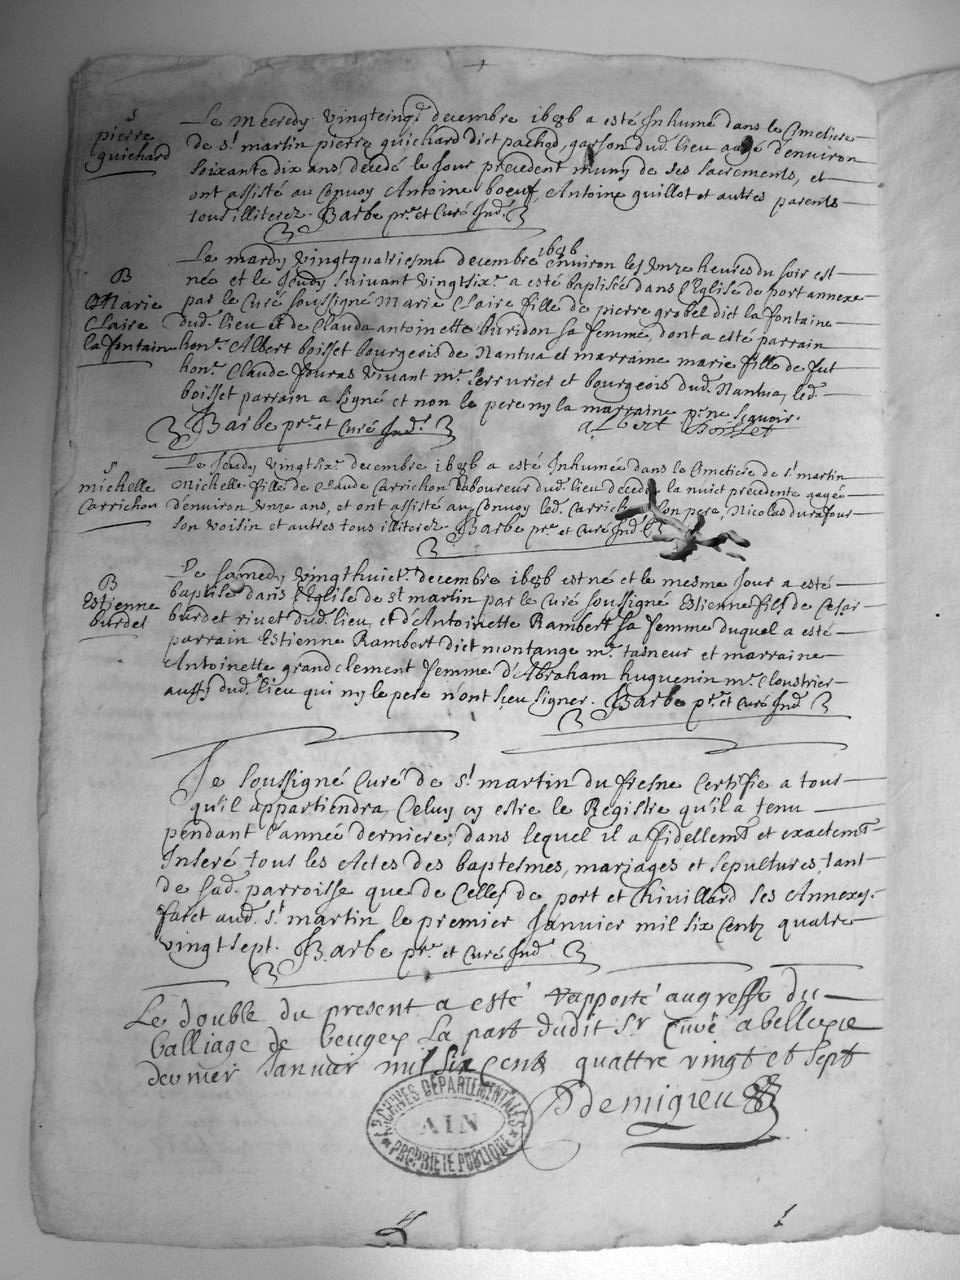 S
pierre
guichard
Le Mecredy vingtcinq.e decembre 1686 a esté Inhumé dans le Cimetiere
de s.t martin pierre guichard dict pachod, garson dud. lieu aagé d'environ
soixante dix ans decedé le Jour precedent muny de ses sacrements, et
ont assisté au Convoy Antoine boeuf, Antoine guillot et autres parents
tous illiterez. Barbe p.re et Curé Ind.
B
Marie
Claire
la fontaine
Le mardy vingtquatriesme decembre 1686 environ les unze heures du soir est
née et le Jeudy suivant vingtsix.e a esté baptisée dans l'Eglise de port annexe
par le Curé soussigné Marie Claire fille de pierre grobel dict la fontaine
dud. lieu et de Clauda antoinette buridon sa femme, dont a esté parrain
hon.e Albert boisset bourgeois de Nantua et marraine marie fille de fut
hon.e Claude Jouras vivant m.e serrurier et bourgeois dud. Nantua, led.
boisset parrain a signé et non le pere ny la marraine p.r ne sçavoir.
Barbe p.re et Curé Ind. Albert Boisset
S
michelle
Carrichon
Le Jeudy vingtsix.e decembre 1686 a esté Inhumée dans le Cimetiere de s.t martin
Michelle fille de Claude Carrichon laboureur dud. lieu decedée la nuict precedente aagée
d'environ unze ans, et ont assisté au Convoy led. Carrichon son pere, Nicolas durafour
son voisin et autres tous illiterez. Barbe p.re et Curé Ind.
B
Estienne
burdet
Le samedy vingthuict.e decembre 1686 est né et le mesme Jour a esté
baptisé dans l'Eglise de s.t martin par le Curé soussigné Estienne fils de Cesar
burdet rivet dud. lieu et d'Antoinette Rambert sa femme duquel a esté
parrain Estienne Rambert dict montange m.e tasneur et marraine
Antoinette grandclement femme d'Abraham huguenin m.e Cloustrier
aussy dud. lieu qui ny le pere n'ont sçeu signer. Barbe p.re et Curé Ind.
Je soussigné Curé de s.t martin du fresne Certifie a tous
qu'il appartiendra Celuy cy estre le Registre qu'il a tenu
pendant l'année derniere, dans lequel il a fidellem.t et exactem.t
Inseré tous les Actes des baptesmes, mariages et sepultures, tant
de sad. parroisse que de Celles de port et Chivillard ses Annexes.
faict aud. s.t martin le premier Janvier mil six Centz quatre
vingt sept. Barbe p.re et Curé Ind.
Le double du present a esté rapporté au greffe du
balliage de beugey la part dudit S.r Curé a belleyie
dernier Janvier mil six Cent quattre vingt et sept
Demigieu
ARCHIVES DÉPARTEMENTALES
AIN
PROPRIÉTÉ PUBLIQUE